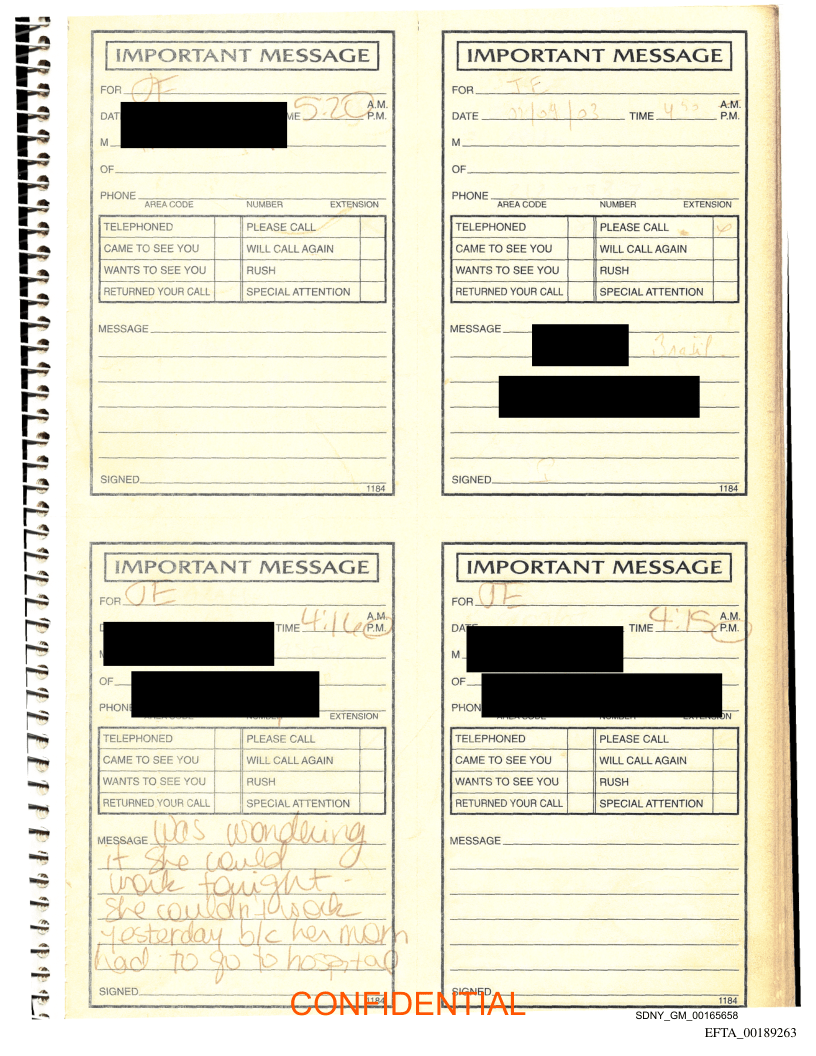 IMPORTANT MESSAGE
FOR JE
DAT ME 5:20 A.M. P.M.
M
OF
PHONE
AREA CODE NUMBER EXTENSION
TELEPHONED PLEASE CALL
CAME TO SEE YOU WILL CALL AGAIN
WANTS TO SEE YOU RUSH
RETURNED YOUR CALL SPECIAL ATTENTION
MESSAGE
SIGNED
1184
IMPORTANT MESSAGE
FOR JE
DATE TIME A.M. P.M.
M
OF
PHONE
AREA CODE NUMBER EXTENSION
TELEPHONED PLEASE CALL
CAME TO SEE YOU WILL CALL AGAIN
WANTS TO SEE YOU RUSH
RETURNED YOUR CALL SPECIAL ATTENTION
MESSAGE
Brasil
SIGNED
1184
IMPORTANT MESSAGE
FOR JE
TIME 4:16 A.M. P.M.
OF
PHON
EXTENSION
TELEPHONED PLEASE CALL
CAME TO SEE YOU WILL CALL AGAIN
WANTS TO SEE YOU RUSH
RETURNED YOUR CALL SPECIAL ATTENTION
MESSAGE was wondering
if she could
work tonight -
she couldn't work
yesterday b/c her mom
had to go to hospital
SIGNED
1184
IMPORTANT MESSAGE
FOR JE
DAT TIME 4:15 A.M. P.M.
M
OF
PHON
AREA CODE NUMBER EXTENSION
TELEPHONED PLEASE CALL
CAME TO SEE YOU WILL CALL AGAIN
WANTS TO SEE YOU RUSH
RETURNED YOUR CALL SPECIAL ATTENTION
MESSAGE
SIGNED
1184
CONFIDENTIAL
SDNY_GM_00165658
EFTA_00189263